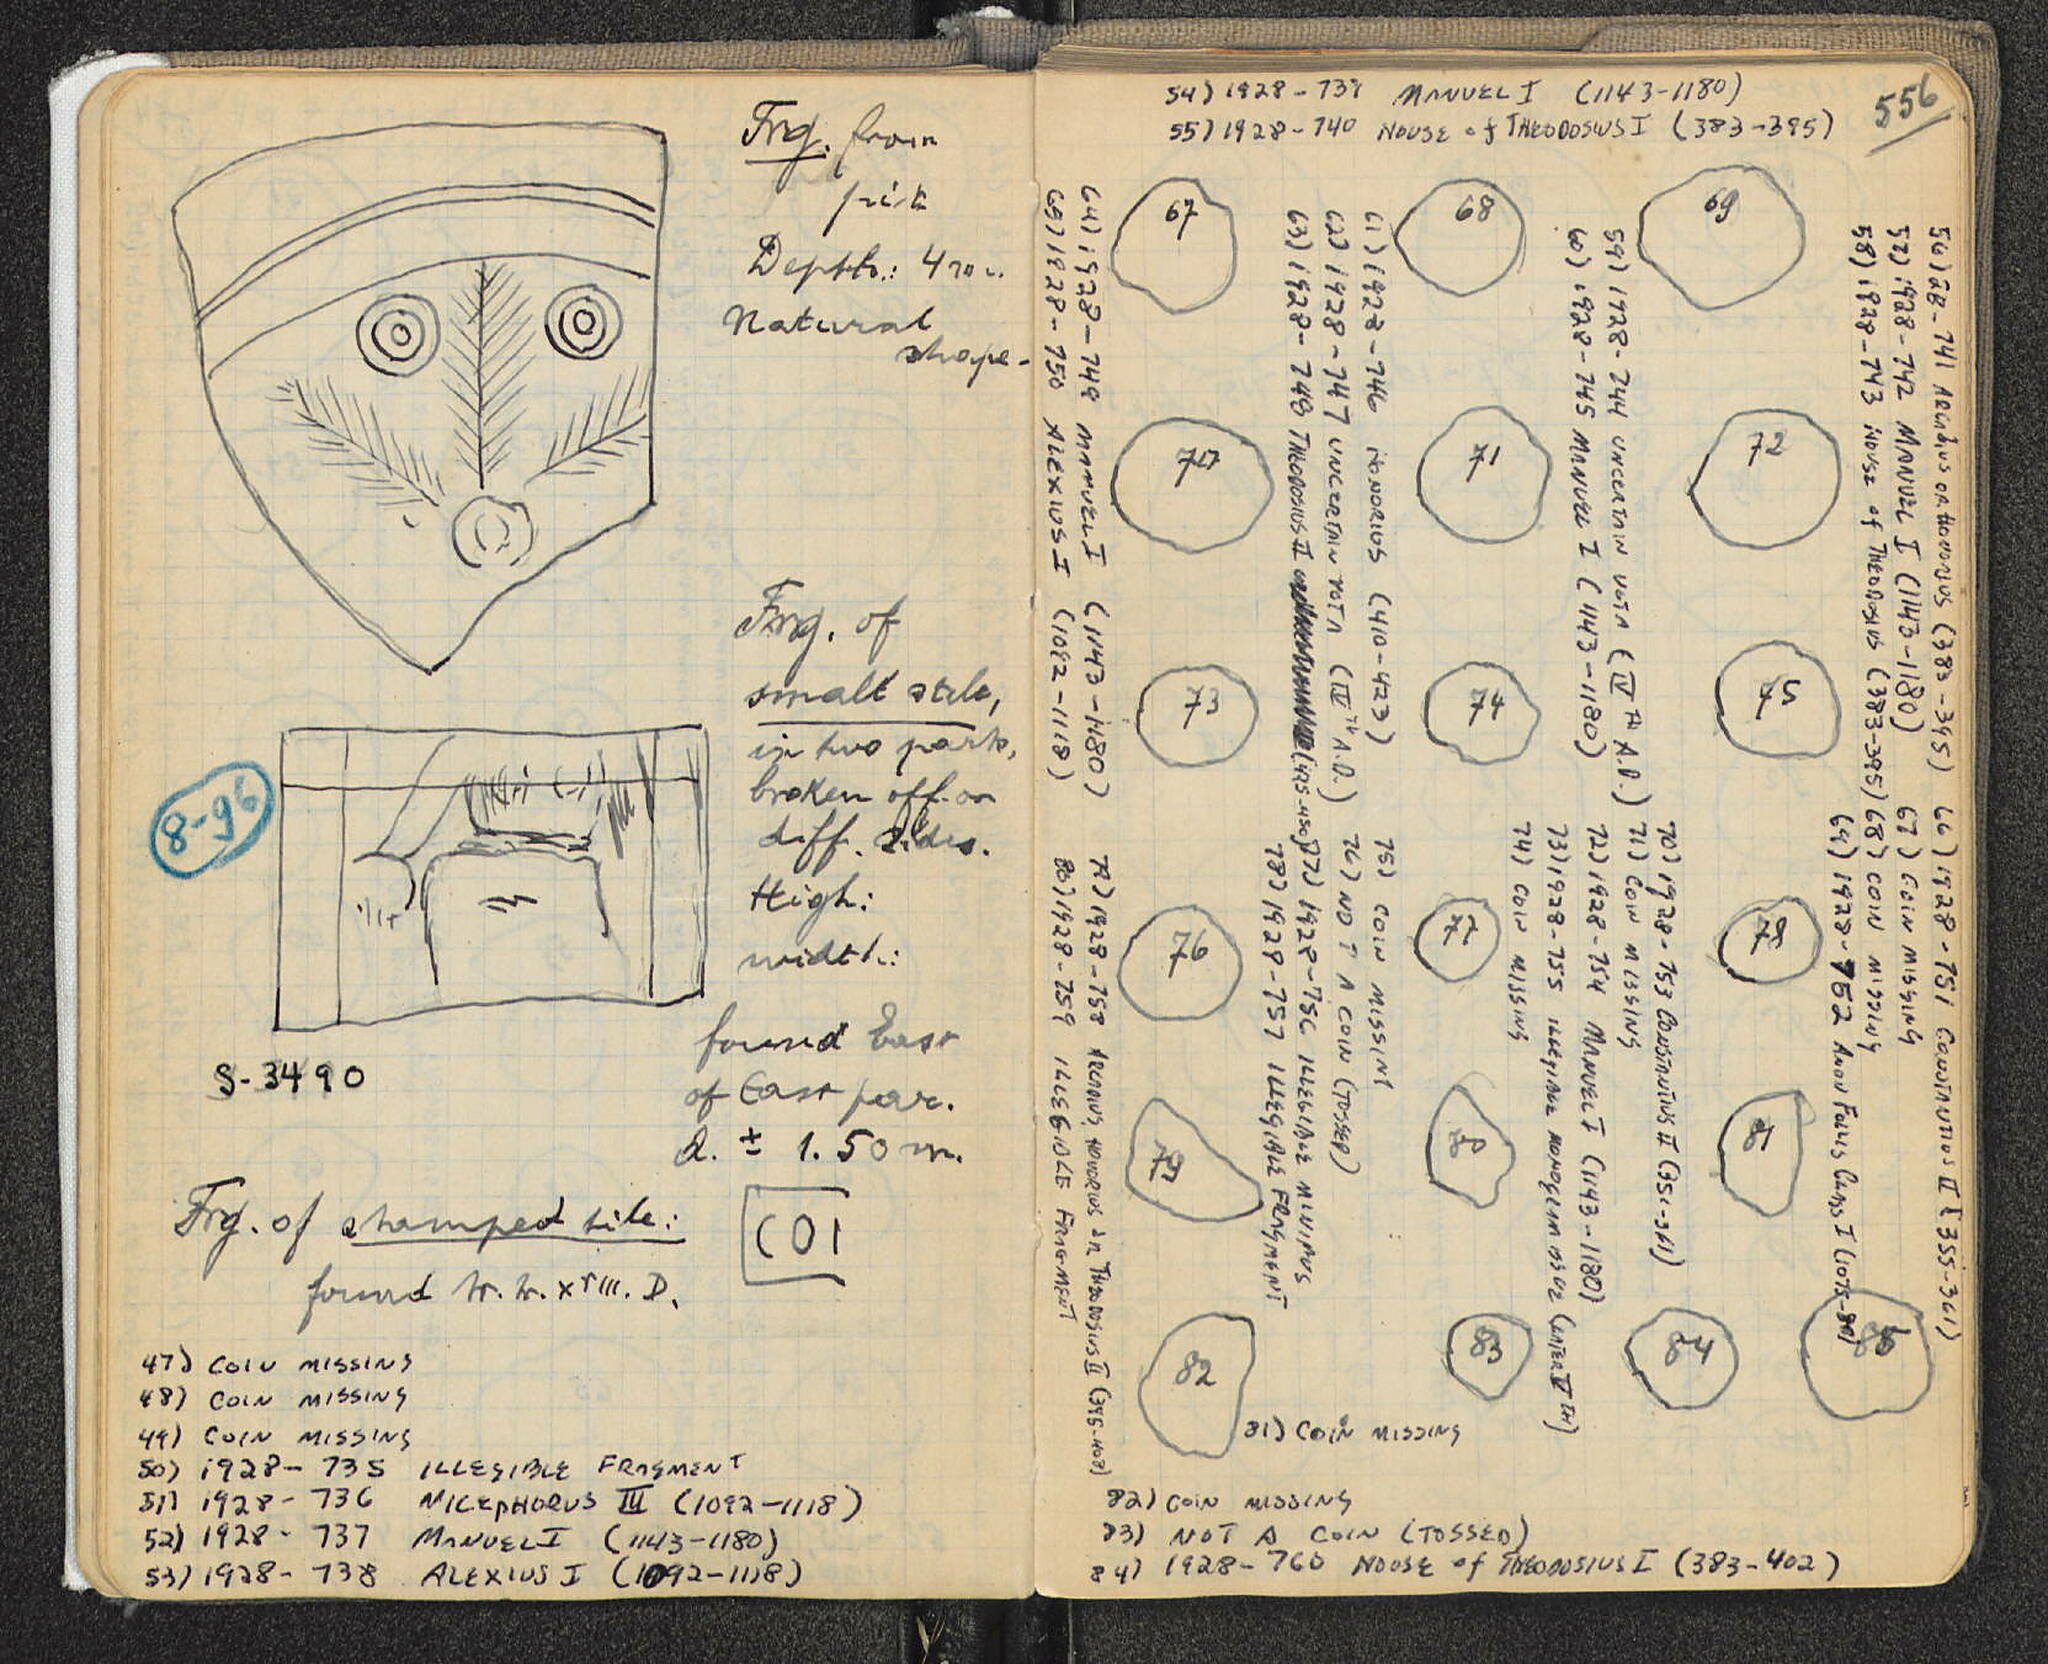 Frg. from
pit
Depth.: 4 m.
Natural
shape.
Frg. of
small stele,
in two parts,
broken off on
diff. sides.
High:
width:
found East
of East par.
d. ± 1.50 m.
8-96
S-3490
Frg. of stamped tile:
COI
found
47) COIN MISSING
48) COIN MISSING
49) COIN MISSING
50) 1928- 735 ILLEGIBLE FRAGMENT
51) 1928- 736 NICEPHORUS III (1092-1118)
52) 1928- 737 MANUEL I (1143-1180)
53) 1928- 738 ALEXIUS I (1092-1118)
556
54) 1928-739 MANUEL I (1143-1180)
55) 1928-740 HOUSE of THEODOSIUS I (383-395)
56) 28-741 ARCADIUS OR HONORIUS (383-395)
57) 1928-742 MANUEL I (1143-1180)
58) 1928-743 HOUSE of THEODOSIUS (383-395)
59) 1928-744 UNCERTAIN VOTA (IV TH A.D.)
60) 1928-745 MANUEL I (1143-1180)
61) 1928-746 HONORIUS (410-423)
62) 1928-747 UNCERTAIN VOTA (IV TH A.D.)
63) 1928-748 THEODOSIUS II (425-450)
64) 1928-749 MANUEL I (1143-1180)
65) 1928-750 ALEXIUS I (1092-1118)
66) 1928-751 CONSTANTIUS II (355-361)
67) COIN MISSING
68) COIN MISSING
69) 1928-752 ANON FOLLIS CLASS I (1075-80)
70) 1928-753 CONSTANTIUS II (351-361)
71) COIN MISSING
72) 1928-754 MANUEL I (1143-1180)
73) 1928-755 ILLEGIBLE MONOGRAM (LATER V TH)
74) COIN MISSING
75) COIN MISSING
76) NOT A COIN (TOSSED)
77) 1928-756 ILLEGIBLE MINIMUS
78) 1928-757 ILLEGIBLE FRAGMENT
79) 1928-758 ARCADIUS, HONORIUS or THEODOSIUS II (395-408)
80) 1928-759 ILLEGIBLE FRAGMENT
67
68
69
70
71
72
73
74
75
76
77
78
79
80
81
82
83
84
85
81) COIN MISSING
82) COIN MISSING
83) NOT A COIN (TOSSED)
84) 1928-760 HOUSE of THEODOSIUS I (383-402)